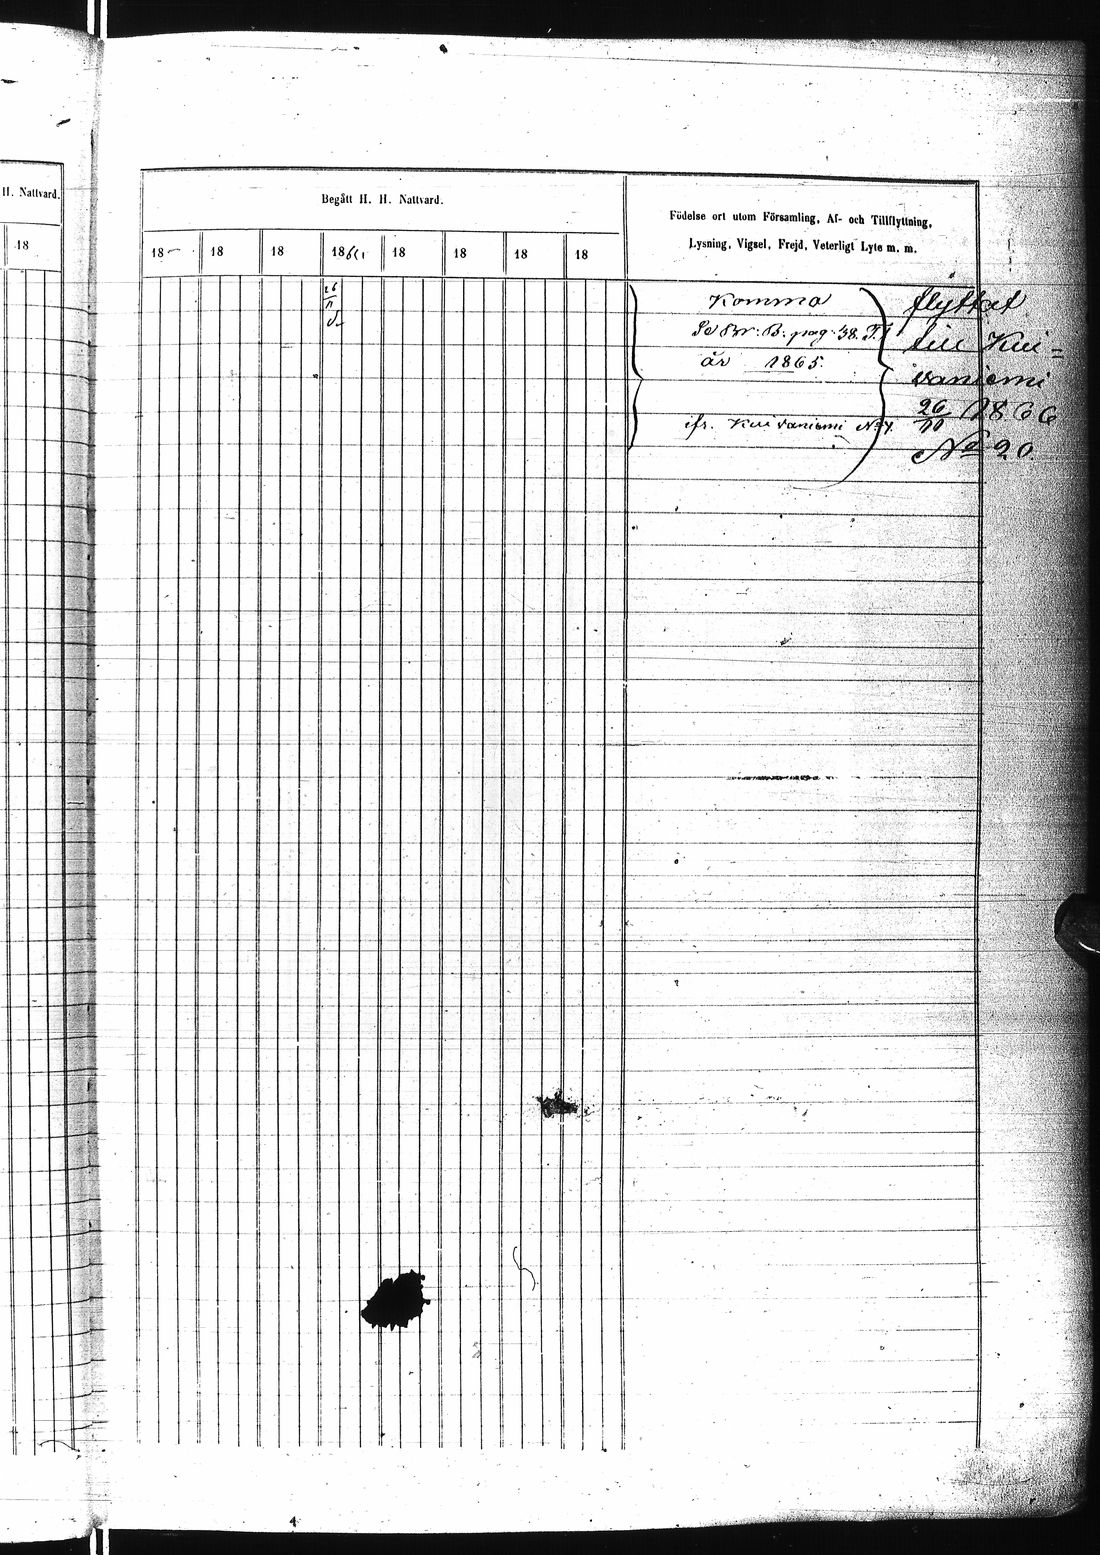 H. Nattvard.
18
Begått H. H. Nattvard.
Födelse ort utom Församling, Af- och Tillflyttning,
Lysning, Vigsel, Frejd, Veterligt Lyte m. m.
18 18 18 1866 18 18 18 18
26
11
Komma
Se Br: B: pag: 38. T.1
år 1865.
cfr. Kuivaniemi No 4.
flyttat
till Kui=
vaniemi
26/10 1866
No 20.
4